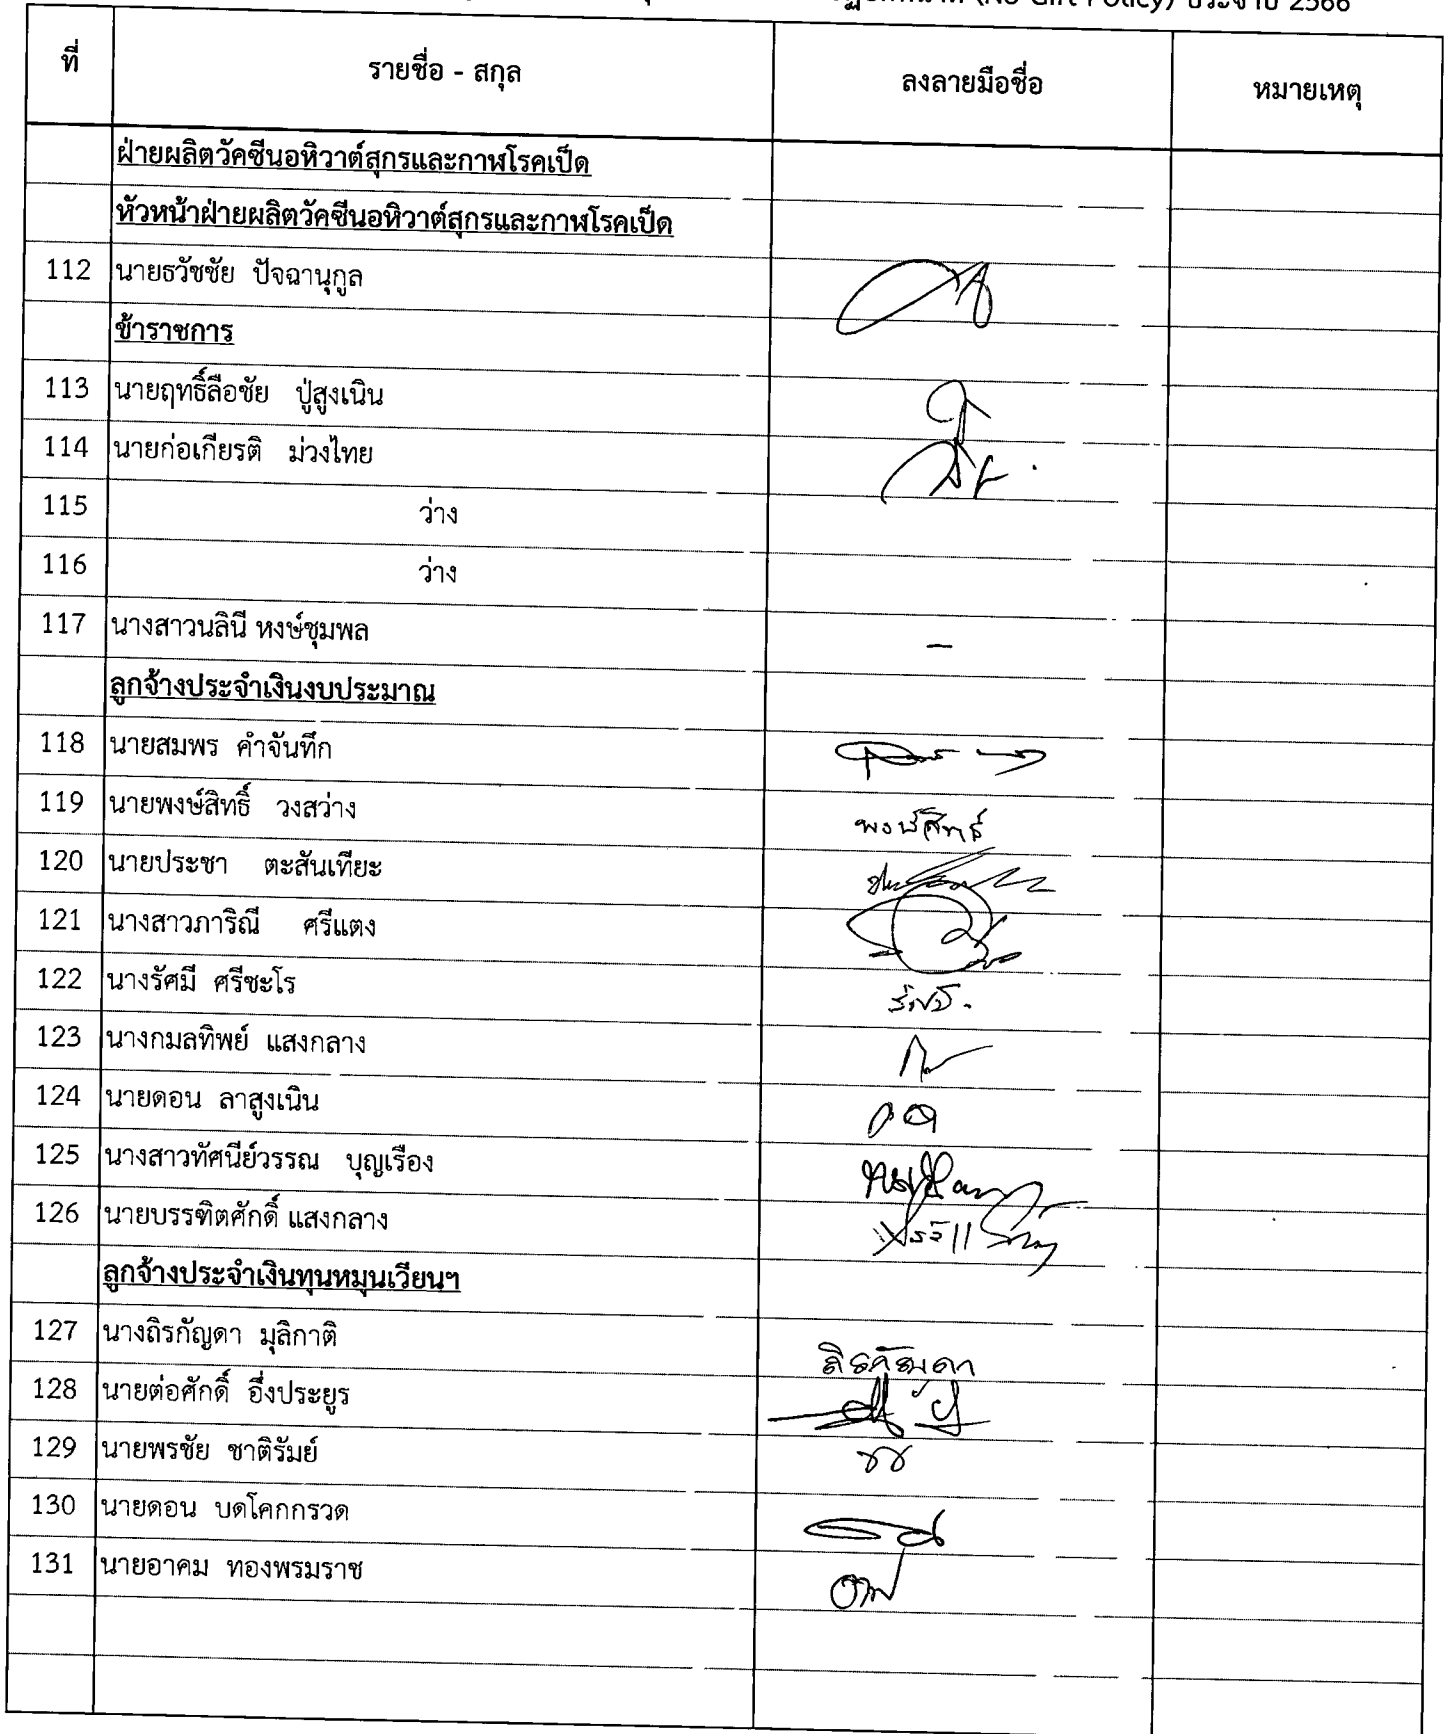 (No Gift Policy) ประจำปี 2566
ที่ รายชื่อ - สกุล ลงลายมือชื่อ หมายเหตุ
ฝ่ายผลิตวัคซีนอหิวาต์สุกรและกาฬโรคเป็ด
หัวหน้าฝ่ายผลิตวัคซีนอหิวาต์สุกรและกาฬโรคเป็ด
112 นายธวัชชัย ปัจฉานุกูล
ข้าราชการ
113 นายฤทธิ์ลือชัย ปู่สูงเนิน
114 นายก่อเกียรติ ม่วงไทย
115 ว่าง
116 ว่าง
117 นางสาวนลินี หงษ์ชุมพล -
ลูกจ้างประจำเงินงบประมาณ
118 นายสมพร คำจันทึก
119 นายพงษ์สิทธิ์ วงสว่าง พงษ์สิทธิ์
120 นายประชา ตะสันเทียะ
121 นางสาวภาริณี ศรีแตง
122 นางรัศมี ศรีชะโร รัศมี
123 นางกมลทิพย์ แสงกลาง
124 นายดอน ลาสูงเนิน
125 นางสาวทัศนีย์วรรณ บุญเรือง
126 นายบรรฑิตศักดิ์ แสงกลาง
ลูกจ้างประจำเงินทุนหมุนเวียนฯ
127 นางถิรกัญดา มุลิกาติ ถิรกัญดา
128 นายต่อศักดิ์ อึ่งประยูร
129 นายพรชัย ชาติรัมย์
130 นายดอน บดโคกกรวด
131 นายอาคม ทองพรมราช